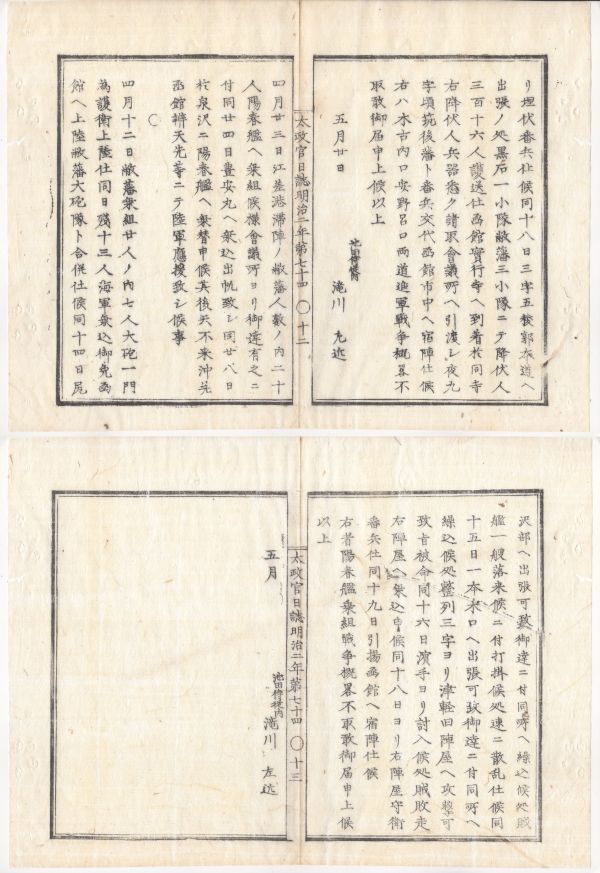 リ埋伏番兵仕候同十八日三字五稜郭本道ヘ
出張ノ処黒石一小隊敝藩三小隊ニテ降伏人
三百十六人護送仕函館實行寺ヘ到着於同寺
右降伏人兵器悉ク諸取會議所ヘ引渡シ夜九
字頃筑後藩ト番兵交代函館市中ヘ宿陣仕候
右ハ木古内口安野呂口両道進軍戦争概畧不
取敢御届申上候以上
五月廿日
池田侍従内
滝川 左近
太政官日誌明治二年第七十四 〇 十二
四月廿三日江差港滞陣ノ敝藩人数ノ内二十
人陽春艦ヘ乗組候様會議所ヨリ御達有之ニ
付同廿四日豊安丸ヘ乗込出帆致シ同廿八日
於泉沢ニ陽春艦ヘ乗替申候其後矢不来沖并
函館辨天先等ニテ陸軍應援致シ候事
〇
四月十二日敝藩乗組廿人ノ内七人大砲一門
為護衛上陸仕同日残十三人海軍乗込御免函
館ヘ上陸敝藩大砲隊ト合併仕候同十四日尻
沢部ヘ出張可致御達ニ付同所ヘ繰込候処賊
艦一艘落来候ニ付打掛候処速ニ散乱仕候同
十五日一本木口ヘ出張可致御達ニ付同所ヘ
繰込候処整列三字ヨリ津軽旧陣屋ヘ攻撃可
致旨被命同十六日濱手ヨリ討入候処賊敗走
右陣屋ヘ乗込申候同十八日ヨリ右陣屋守衛
番兵仕同十九日引揚函館ヘ宿陣仕候
右者陽春艦乗組戦争概畧不取敢御届申上候
以上
太政官日誌明治二年第七十四 〇 十三
五月
池田侍従内
滝川 左近